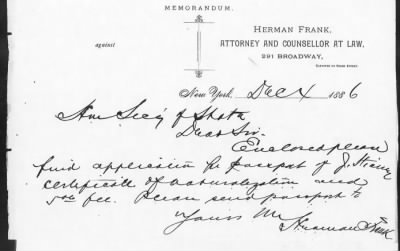 MEMORANDUM.
HERMAN FRANK,
against
ATTORNEY AND COUNSELLOR AT LAW,
291 BROADWAY,
New York, Dec 4 1886
Hon Secy of State
Dear Sir.
Enclosed please
find application for passport of J.
certificate of naturalization and
5 00 fee. Please send passport to
Yours
Herman Frank